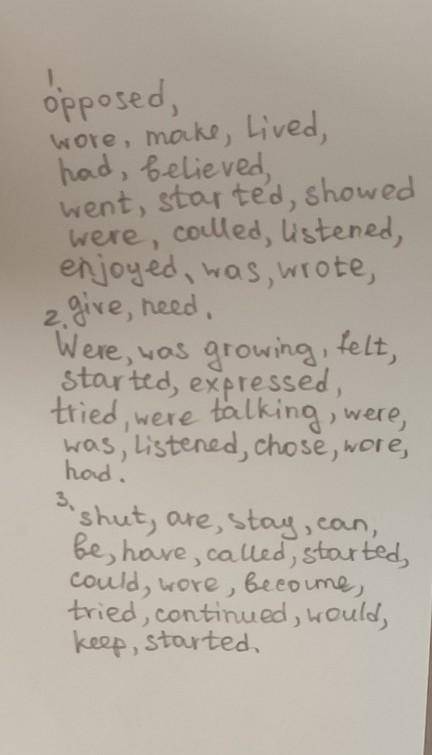 1.
opposed,
wore, make, lived,
had, believed,
went, started, showed
were, called, listened,
enjoyed, was, wrote,
give, need.
2.
Were, was growing, felt,
started, expressed,
tried, were talking, were,
was, listened, chose, wore,
had.
3.
shut, are, stay, can,
be, have, called, started,
could, wore, become,
tried, continued, would,
keep, started.